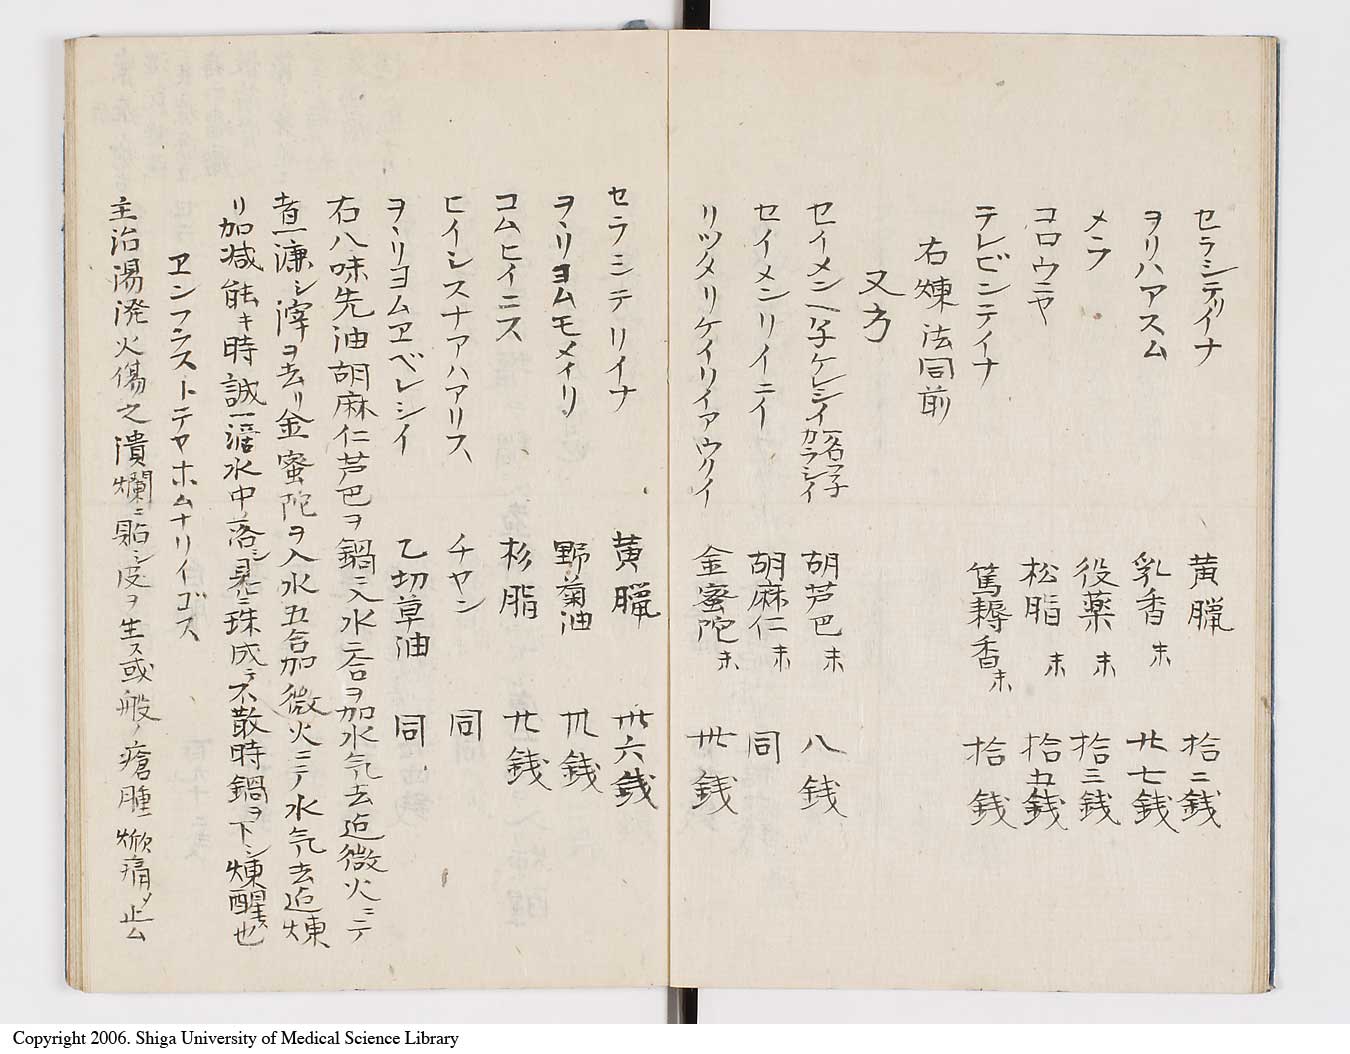 セラシテリイナ 黄臘 拾二銭
ヲリハアスム 乳香末 廿七銭
メラ 役薬末 拾三銭
コロウニヤ 松脂末 拾五銭
テレビンテイナ 篤耨香末 拾銭
右煉法同前
又方
セイメンヘ子ケレシイ 一名フ子カラシイ 胡芦巴末 八銭
セイメンリイニイ 胡麻仁末 同
リツタリケイリイアウリイ 金蜜陀末 卅銭
セラシテリイナ 黄臘 卅六銭
ヲヽリヨムモメイリ 野菊油 卅銭
コムヒイニス 杉脂 廿銭
ヒイシスナアハアリス チヤン 同
ヲヽリヨムヱベレシイ 乙切草油 同
右八味先油胡麻仁芦巴ヲ鍋ニ入水二合ヲ加水气去迠微火ニテ
煮濂シ滓ヲ去リ金蜜陀ヲ入水五合加微火ニテ水气去迠煉
リ加减能キ時誠一滛水中ニ落シ見ニ珠成テ不散時鍋ヲ下シ煉醒ス也
ヱンフラストテヤホムナリイゴス
主治湯溌火傷之潰爛ニ貼シ皮ヲ生ス或般ノ瘡腫焮痛ヲ止ム